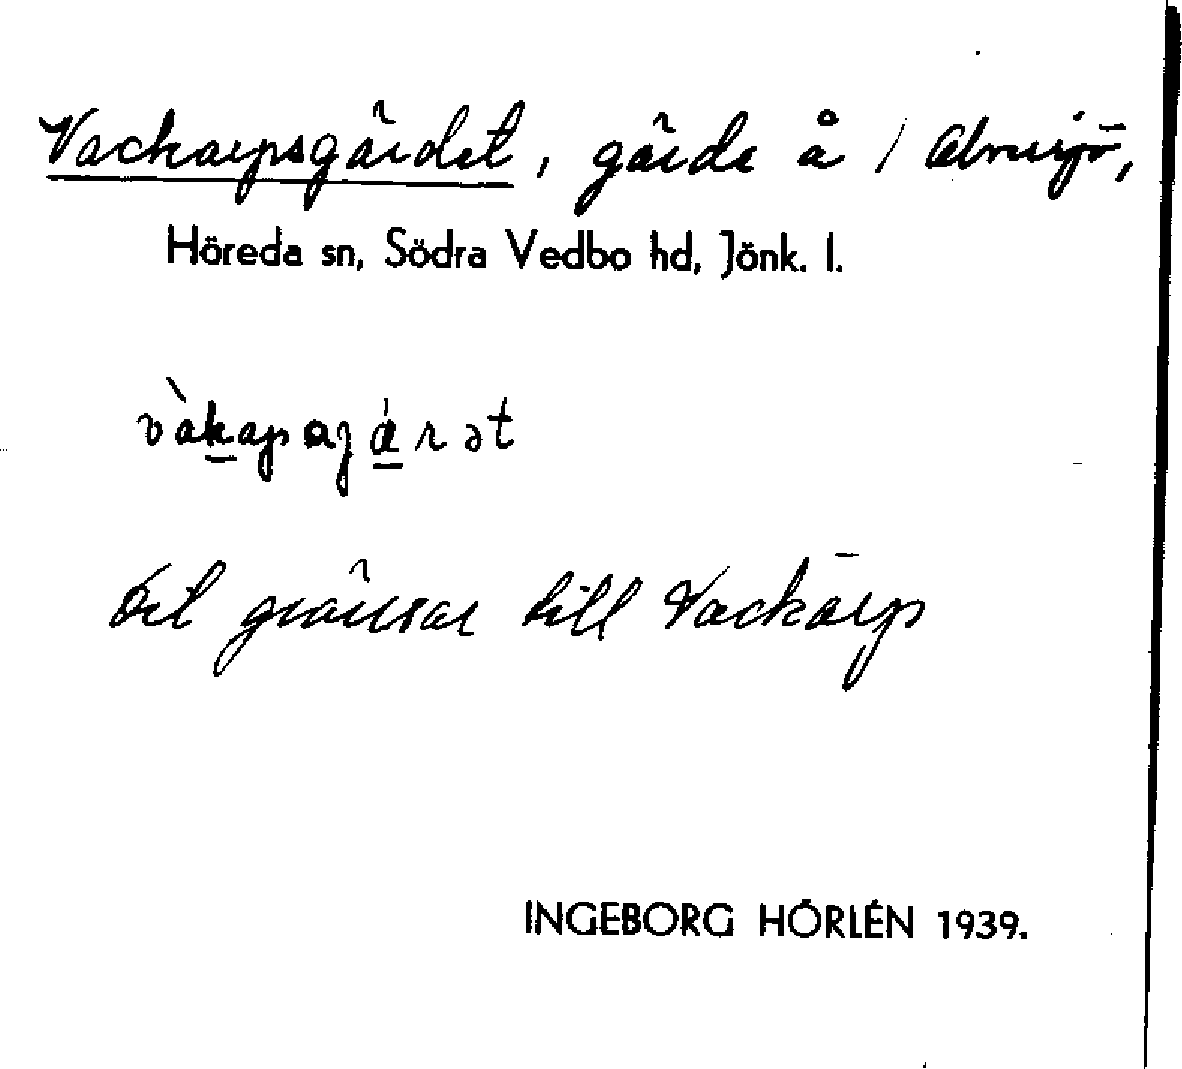 Vackarpsgärdet, gärde å / Almesjö,
Höreda sn, Södra Vedbo hd, Jönk. l.
Det gränsar till Vackarp
INGEBORG HÖRLÉN 1939.